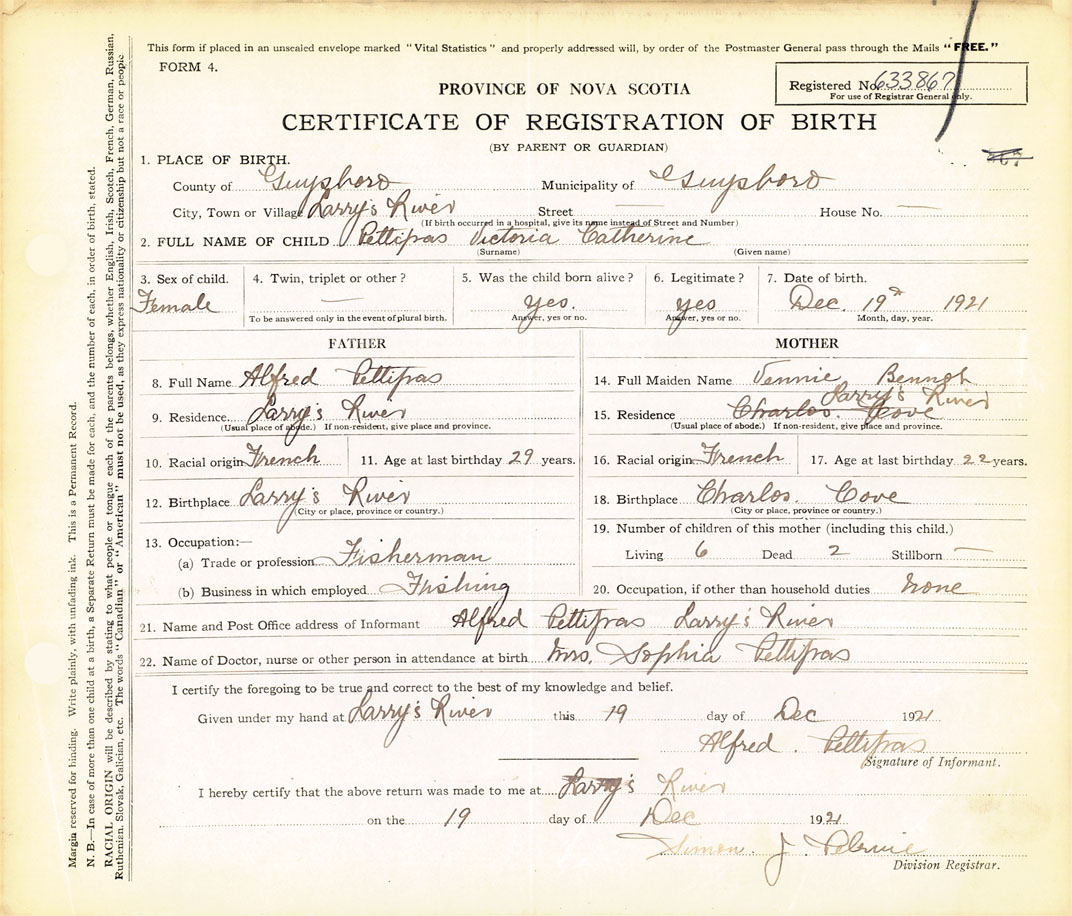 This form if placed in an unsealed envelope marked "Vital Statistics" and properly addressed will, by order of the Postmaster General pass through the Mails "FREE."
FORM 4.
Registered No. 633867
For use of Registrar General only.
PROVINCE OF NOVA SCOTIA
CERTIFICATE OF REGISTRATION OF BIRTH
(BY PARENT OR GUARDIAN)
1. PLACE OF BIRTH.
County of Guysboro Municipality of Guysboro
City, Town or Village Larry's River Street — House No. —
(If birth occurred in a hospital, give its name instead of Street and Number)
2. FULL NAME OF CHILD Pettipas Victoria Catherine
(Surname) (Given name)
3. Sex of child. 4. Twin, triplet or other? 5. Was the child born alive? 6. Legitimate? 7. Date of birth.
Female — yes. yes Dec. 19th 1921
To be answered only in the event of plural birth. Answer, yes or no. Answer, yes or no. Month, day, year.
FATHER MOTHER
8. Full Name Alfred Pettipas
9. Residence Larry's River
(Usual place of abode.) If non-resident, give place and province.
10. Racial origin French 11. Age at last birthday 29 years.
12. Birthplace Larry's River
(City or place, province or country.)
13. Occupation:—
(a) Trade or profession Fisherman
(b) Business in which employed Fishing
14. Full Maiden Name Vennie
Larry's River
15. Residence Charlos. Cove
(Usual place of abode.) If non-resident, give place and province.
16. Racial origin French 17. Age at last birthday 22 years.
18. Birthplace Charlos. Cove
(City or place, province or country.)
19. Number of children of this mother (including this child.)
Living 6 Dead 2 Stillborn —
20. Occupation, if other than household duties None
21. Name and Post Office address of Informant Alfred Pettipas Larry's River
22. Name of Doctor, nurse or other person in attendance at birth Mrs. Sophia Pettipas
I certify the foregoing to be true and correct to the best of my knowledge and belief.
Given under my hand at Larry's River this 19 day of Dec 1921
Alfred . Pettipas
Signature of Informant.
I hereby certify that the above return was made to me at Larry's River
on the 19 day of Dec 1921
Simon. J.
Division Registrar.
Margin reserved for binding. Write plainly, with unfading ink. This is a Permanent Record.
N. B.—In case of more than one child at a birth, a Separate Return must be made for each, and the number of each, in order of birth, stated.
RACIAL ORIGIN will be described by stating to what people or tongue each of the parents belongs, whether English, Irish, Scotch, French, German, Russian,
Ruthenian, Slovak, Galician, etc. The words "Canadian" or "American" must not be used, as they express nationality or citizenship but not a race or people